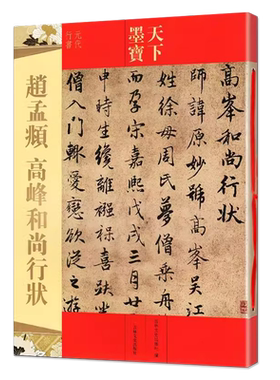 天下
墨寶
高峯和尚行狀
師諱原妙號高峯吳江
姓徐母周氏夢僧乘舟
而孕宋嘉熙戊戌三月廿
申時生纔離襁褓喜趺
僧入門輒愛戀欲從之游
元代
行書
趙孟頫 高峰和尚行狀